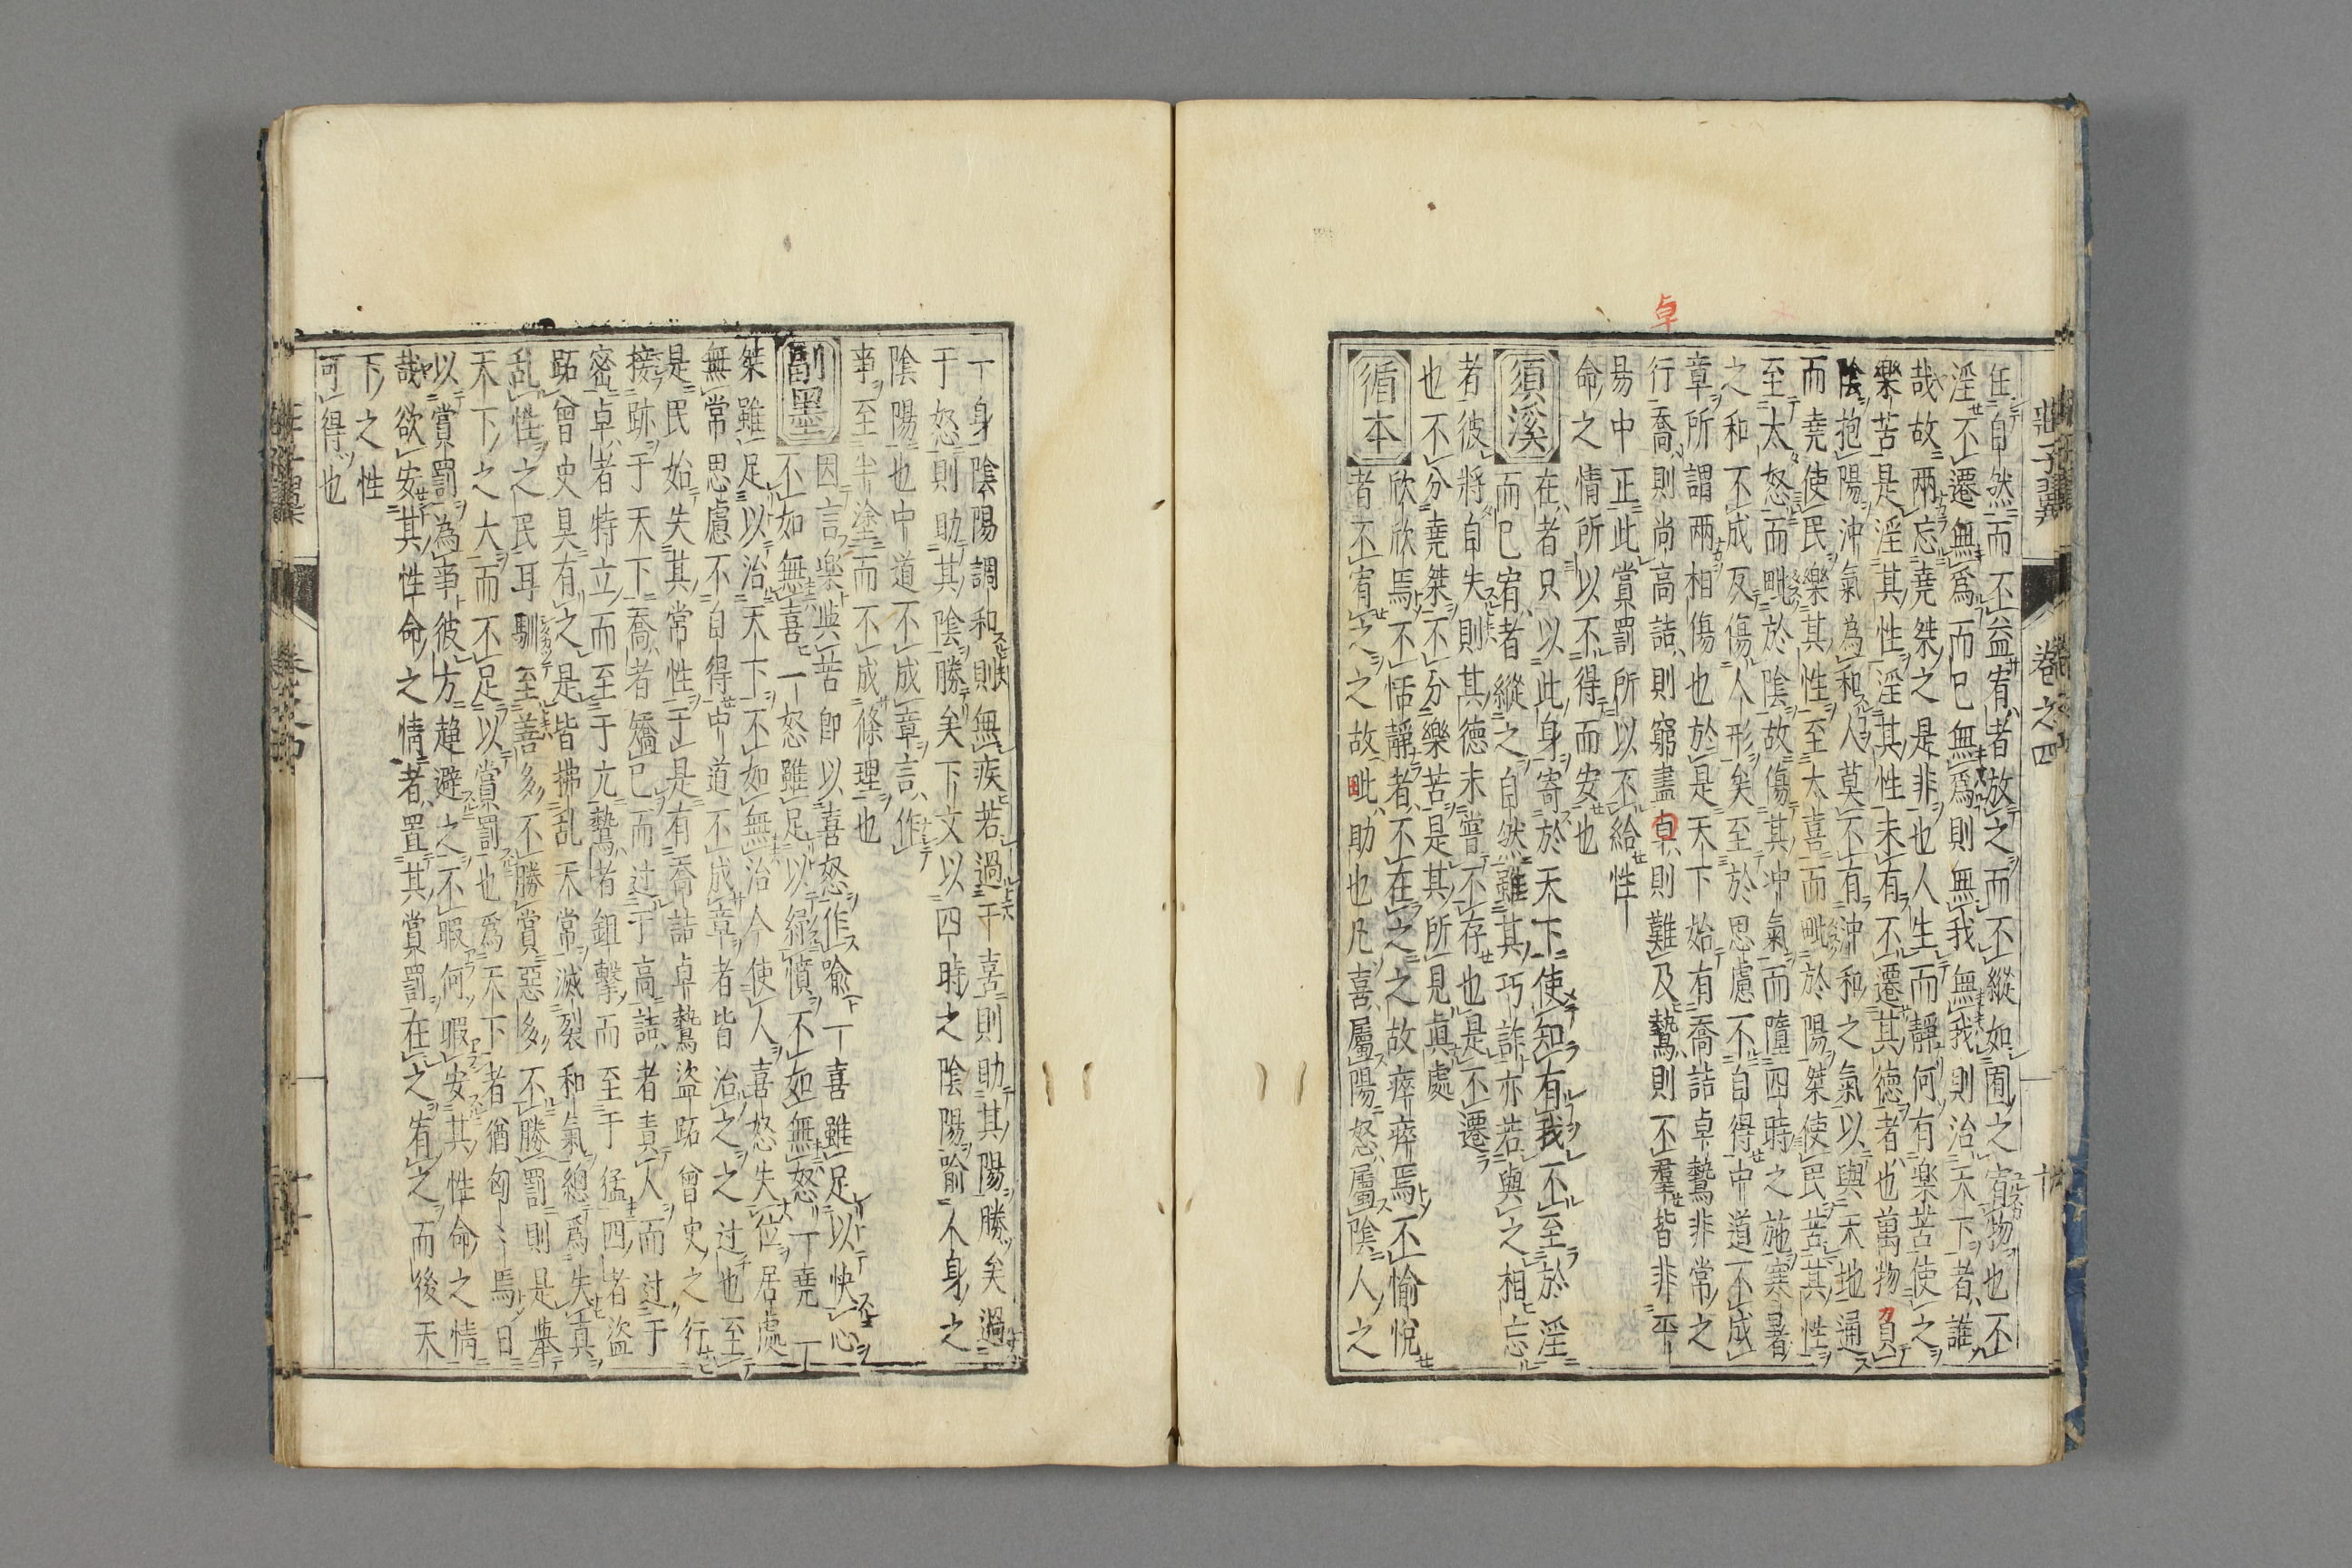 莊子翼 卷之四
任自然而不益宥者放之而不縱如囿之宥物也不
淫不遷無為而已無為則無我無我則治天下者誰
哉故兩忘堯桀之是非也人生而靜何有樂苦使之
樂苦是淫其性淫其性未有不遷其德者也萬物負
陰抱陽沖氣為和人莫不有沖和之氣以與天地通
而堯使民樂其性至大喜而毗於陽桀使民苦其性
至太怒而毗於陰故傷其冲氣而隳四時之施寒暑
之和不成反傷人形矣至於思慮不自得中道不成
章所謂兩相傷也於是天下始有喬詰卓鷙非常之
行喬則尚高詰則窮盡卓則難及鷙則不羣皆非平
易中正此賞罰所以不給性
命之情所以不得而安也
須溪
在者只以此身寄於天下使知有我不至於淫
而已宥者縱之自然雖其巧詐亦若與之相忘
者彼將自失則其德未嘗不存也是不遷
也不分堯桀不分樂苦是其所見真處
循本
欣欣焉不恬靜者不在之之故瘁瘁焉不愉悅
者不宥之之故毗助也凡喜屬陽怒屬陰人之
一身陰陽調和則無疾若過于喜則助其陽勝矣過
于怒則助其陰勝矣下文以四時之陰陽喻人身之
陰陽也中道不成章言作
事至半塗而不成條理也
副墨
因言樂與苦即以喜怒作喻一喜雖足以快心
不如無喜一怒雖足以縐憤不如無怒一堯一
桀雖足以治天下不如無治今使人喜怒失位居處
無常思慮不自得中道不成章者皆治之之过也至
是民始失其常性于是有喬詰卓鷙盜跖曾史之行
接跡于天下喬者矯已而过于高詰者責人而过于
密卓者特立而至于亢鷙者鉏擊而至于猛四者盜
跖曾史具有之是皆拂乱天常滅裂和氣總為失真
乱性之民耳馴至善多不勝賞惡多不勝罰則是舉
天下之大而不足以賞罰也為天下者猶匈匈焉日
以賞罰為事彼方趨避之不暇何暇安其性命之情
哉欲安其性命之情者置其賞罰在之宥之而後天
下之性
可得也